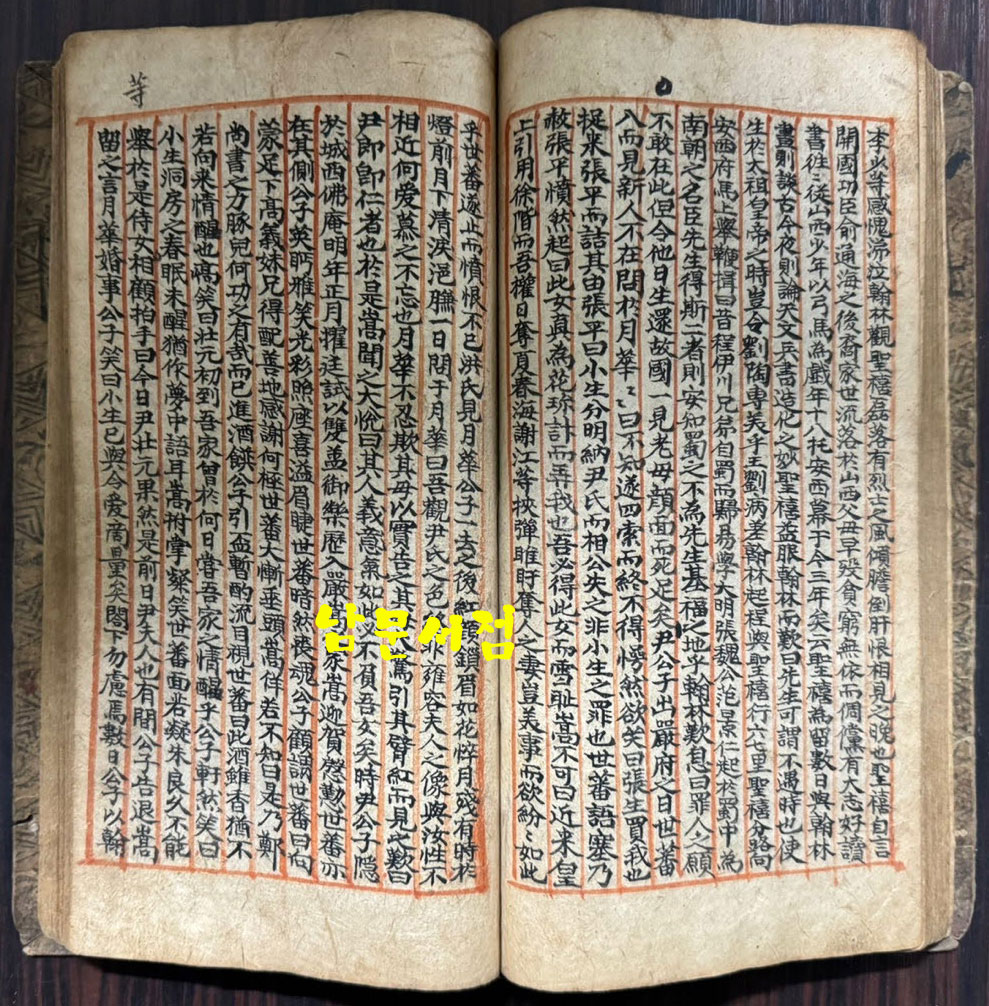 李必等感愧涕泣翰林觀聖禧磊落有烈士之風傾膽倒肝恨相見之晚也聖禧自言
開國功臣俞通海之後裔家世流落於山西父母早歿貧窮無依而倜儻有大志好讀
書徃〻從山西少年以弓馬為戲年十八托安西幕于今三年矣云聖禧為留數日與翰林
晝則談古今夜則論天文兵書造化之妙聖禧益服翰林而歎曰先生可謂不遇時也使
生於太祖皇帝之時豈令劉陶專美乎玊劉病差翰林起程與聖禧行六七里聖禧分路向
安西府馬上擧鞭揖曰昔程伊川兄弟自蜀而歸易學大明張魏公范景仁起於蜀中為
南朝之名臣先生得斯二者則安知蜀之不為先生基福之地乎翰林歎息曰罪人之願
不敢在此但令他日生還故國一見老母顔面而死足矣尹公子出嚴府之日世蕃
入而見新人不在問於月華〻曰不知遂四索而終不得愕然欲笑曰張生賣我也
捉來張平而詰其由張平曰小生分明納尹氏而相公失之非小生之罪也世蕃語塞乃
赦張平憤然起曰此女真為花珎計而再我也吾必得此女而雪耻嵩不可曰近来皇
上引用徐階而吾權日奪夏春海謝江等挾彈睢盱奪人之妻豈美事而欲紛〻如此
等
乎世蕃遂止而憤恨不已洪氏見月華公子一去之後紅鎖眉如花悴月殘有時於
燈前月下清淚浥臁一日問于月華曰吾觀尹氏之色非雍容夫人之像與汝性不
相近何爱慕之不忘也月華不忍欺其母以實告之其引其臂紅而見之歎曰
尹郎即仁者也於是嵩聞之大悅曰其人義意氣如此必不負吾女矣時尹公子隠
於城西佛庵明年正月擢廷試以雙盖御樂歷入嚴嵩家嵩迎賀慇懃世蕃亦
在其側公子英眄雅笑光彩照座喜溢眉睫世蕃暗然喪魂公子顧謂世蕃曰向
蒙足下髙義妹兄得配善地感謝何極世蕃大慚垂頭嵩佯若不知曰是乃鄭
尚書之力豚兒何功之有哉而已進酒饌公子引盃暫酌流目視世蕃曰此酒雖香猶不
若向来情醒也嵩笑曰壮元初到吾家曾於何日嘗吾家之情醒乎公子軒然笑曰
小生洞房之春眠未醒猶作夢中語耳嵩拊掌粲笑世蕃面若凝朱良久不能
擧於是侍女相顧拍手曰今日尹壮元果然是前日尹夫人也有間公子告退嵩
留之言月華婚事公子笑曰小生已與令爱啇量矣閤下勿慮焉數日公子以翰
남문서점